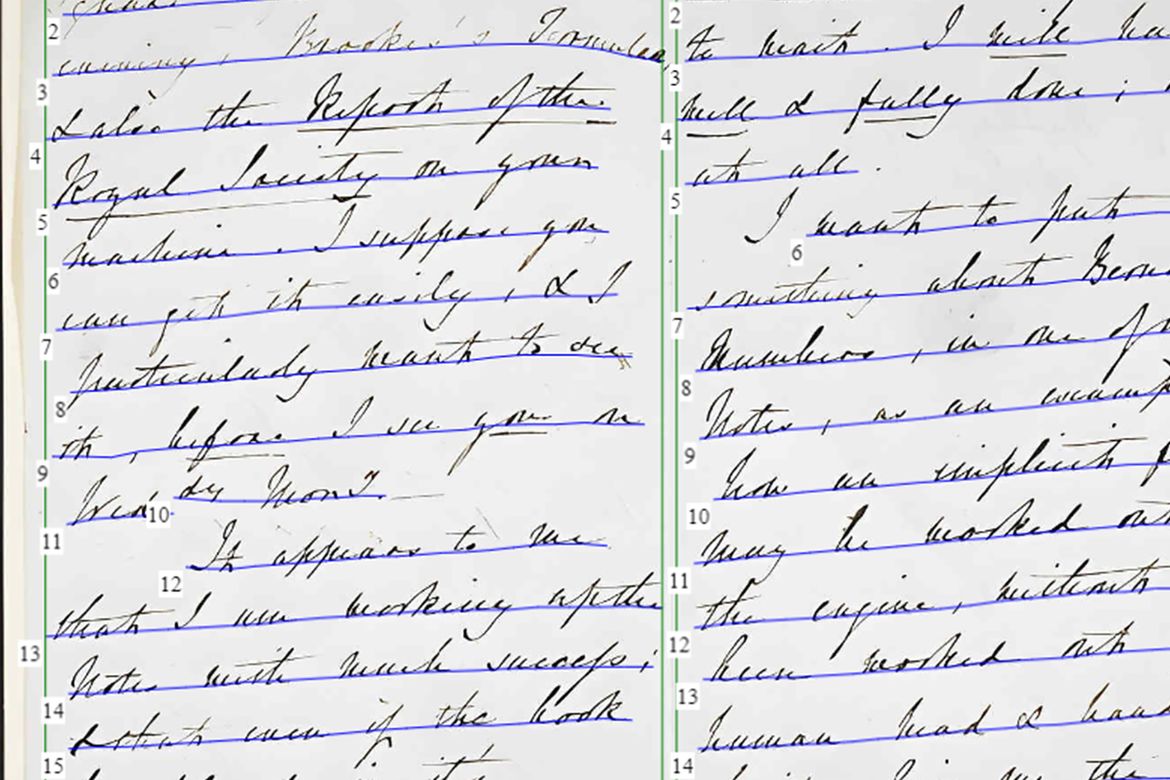 evening, Brooke's Formulae,
& also the Report of the
Royal Society on your
machine. I suppose you
can get it easily, & I
particularly want to see
it, before I see you on
Wed'dy Morng.
It appears to me
that I am working up the
Notes with much success;
& that even if the book
to wait. I will ha
well & fully done;
at all.
I want to put
something about Bern
Numbers, in one of m
Notes, as an examp
how an implicit f
may be worked out
the engine, without
been worked out
human head & hand